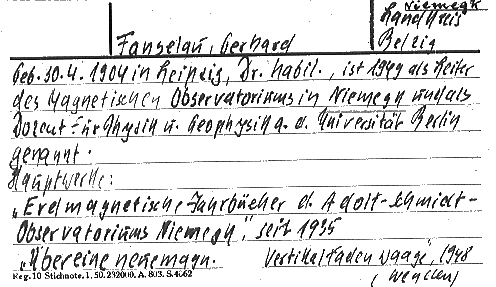 Niemegk
Landkreis
Belzig
Fanselau, Gerhard
Geb. 30.4.1904 in Leipzig, Dr. habil., ist 1949 als Leiter
des Magnetischen Observatoriums in Niemegk und als
Dozent für Physik u. Geophysik a. d. Universität Berlin
genannt.
Hauptwerke:
„Erdmagnetische Jahrbücher d. Adolf-Schmidt-
Observatoriums Niemegk", seit 1935
„Über eine neue magn. Vertikalfadenwaage", 1948
Reg. 10 Stichnote. 1, 50. 232000. A. 803. S. 4662